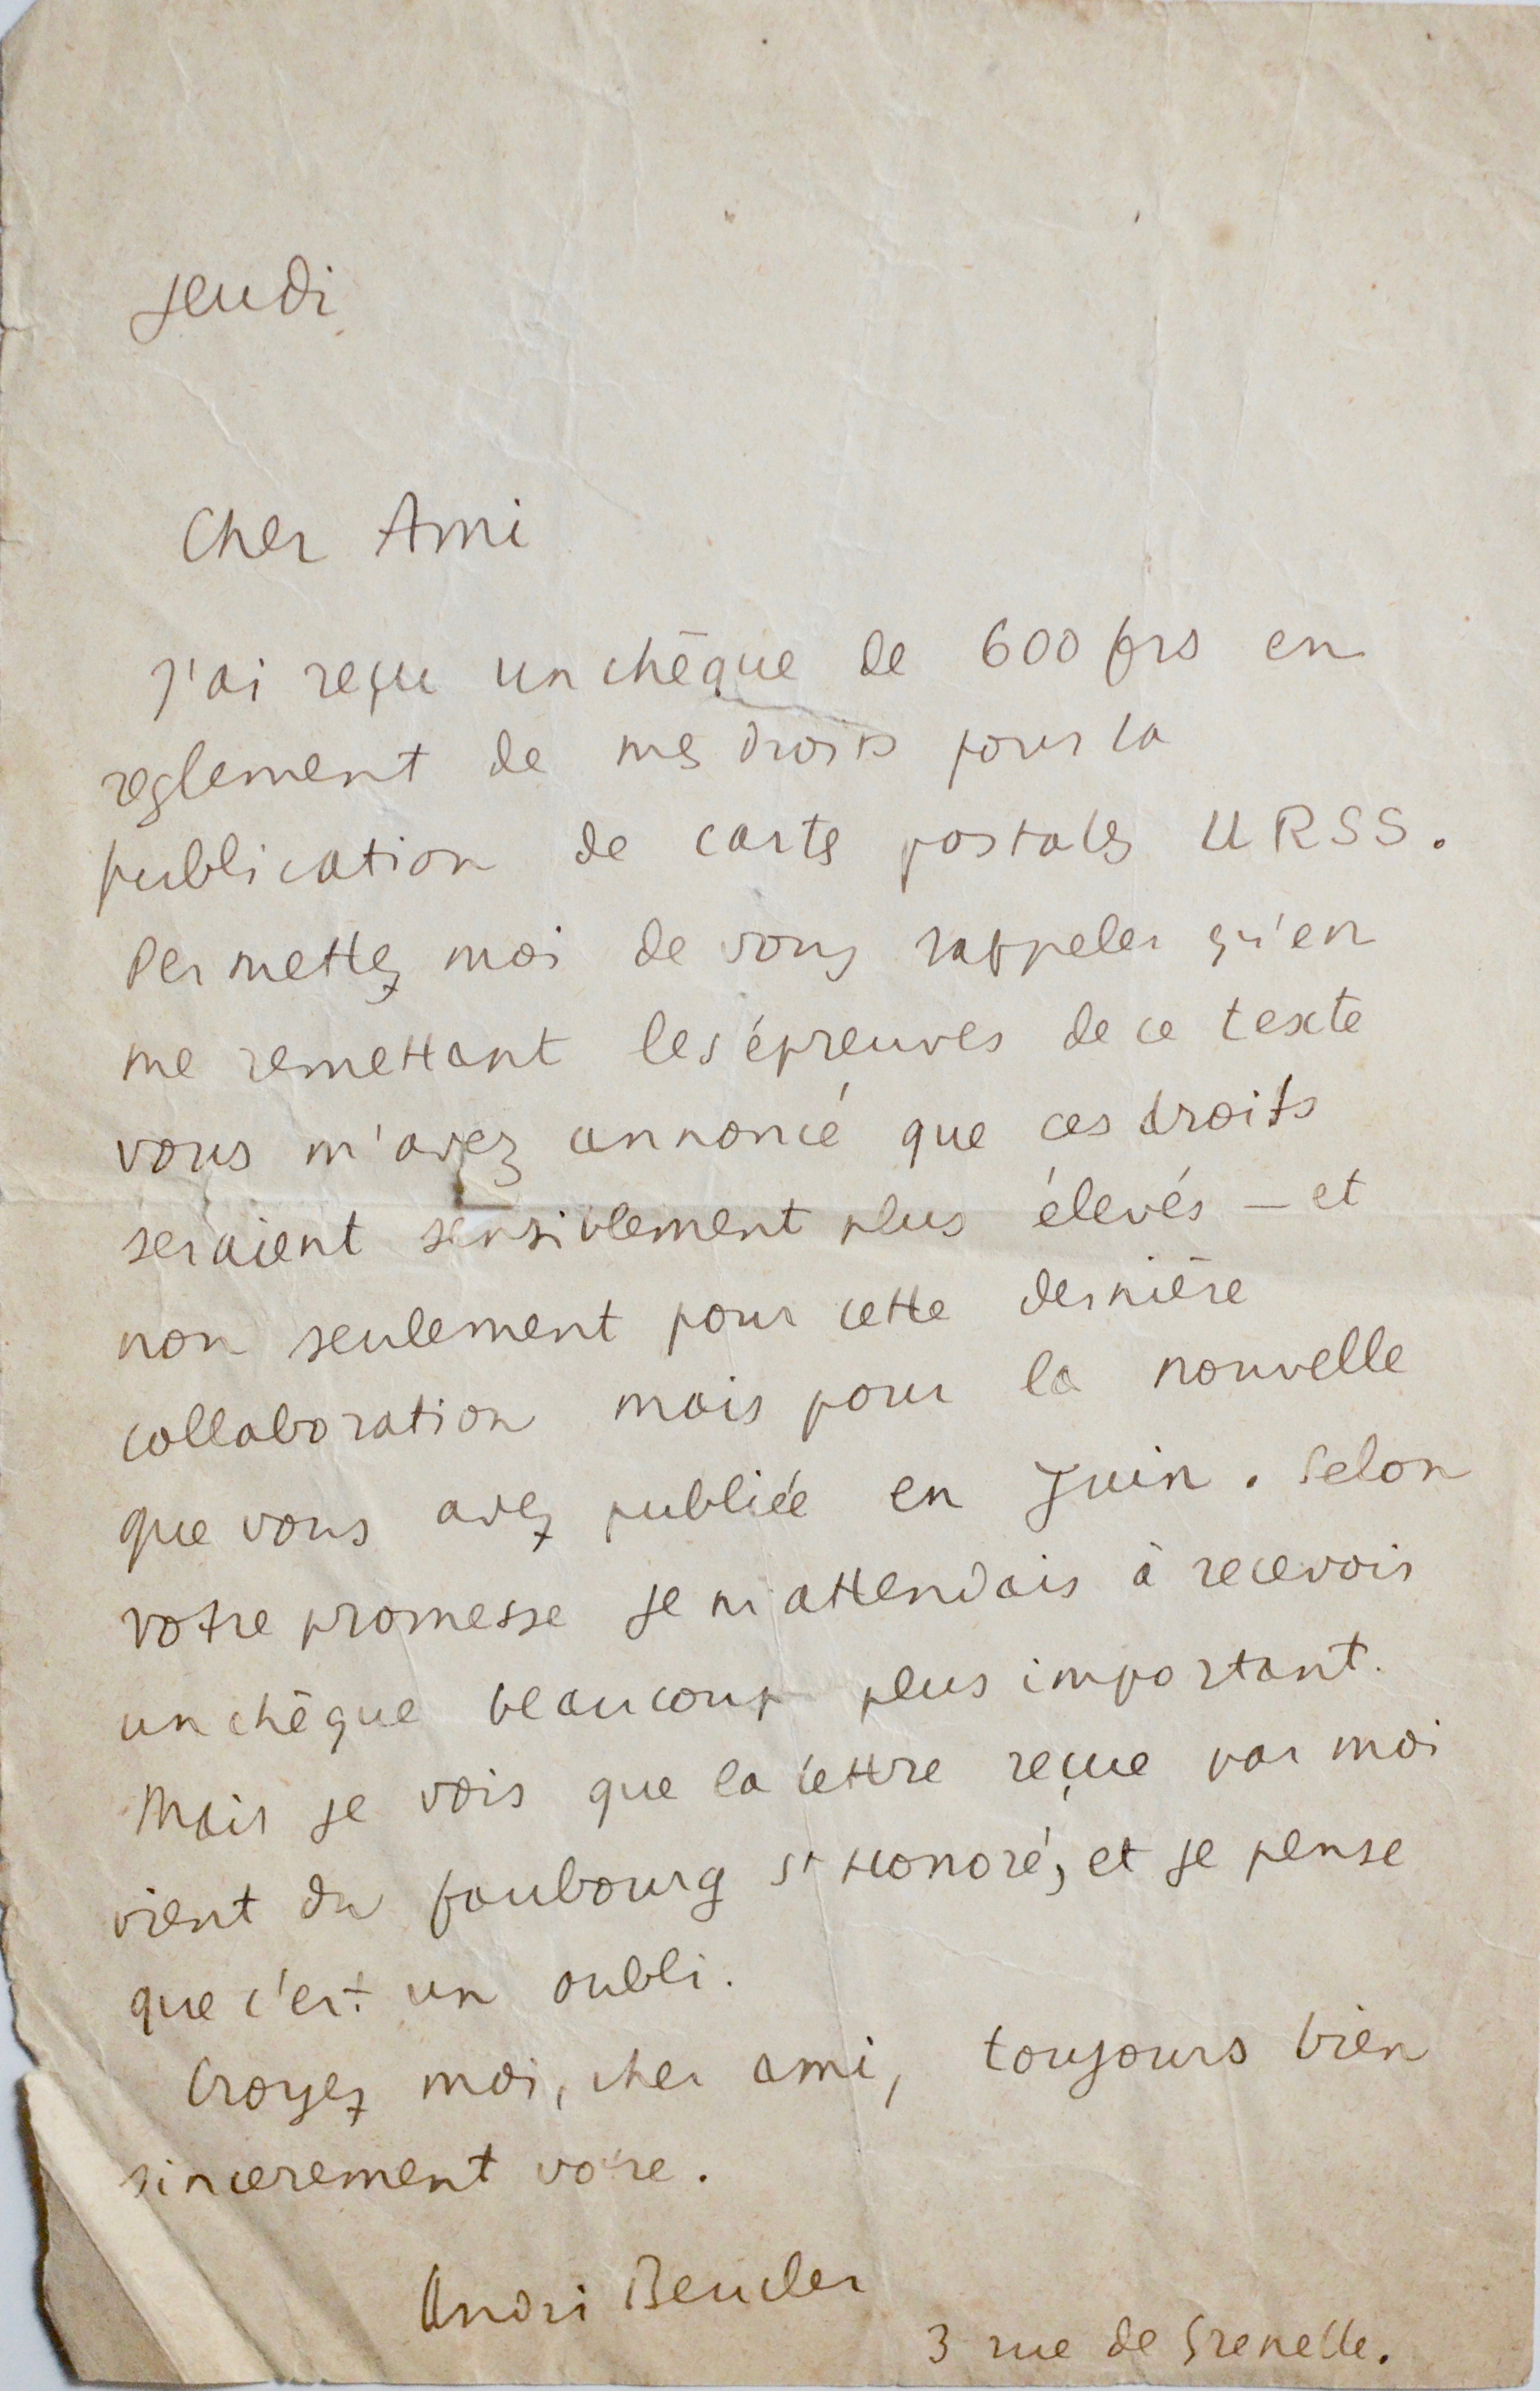 jeudi
Cher Ami
J'ai reçu un chèque de 600 frs en
reglement de mes droits pour la
publication de cartes postales URSS.
Permettez moi de vous rappeler qu'en
me remettant les épreuves de ce texte
vous m'avez annoncé que ces droits
seraient sensiblement plus élevés – et
non seulement pour cette dernière
collaboration mais pour la nouvelle
que vous avez publiée en Juin. Selon
votre promesse je m'attendais à recevoir
un chèque beaucoup plus important.
Mais je vois que la lettre reçue par moi
vient du faubourg St Honoré, et je pense
que c'est un oubli.
Croyez moi, cher ami, toujours bien
sincerement votre.
André Beucler
3 rue de Grenelle.